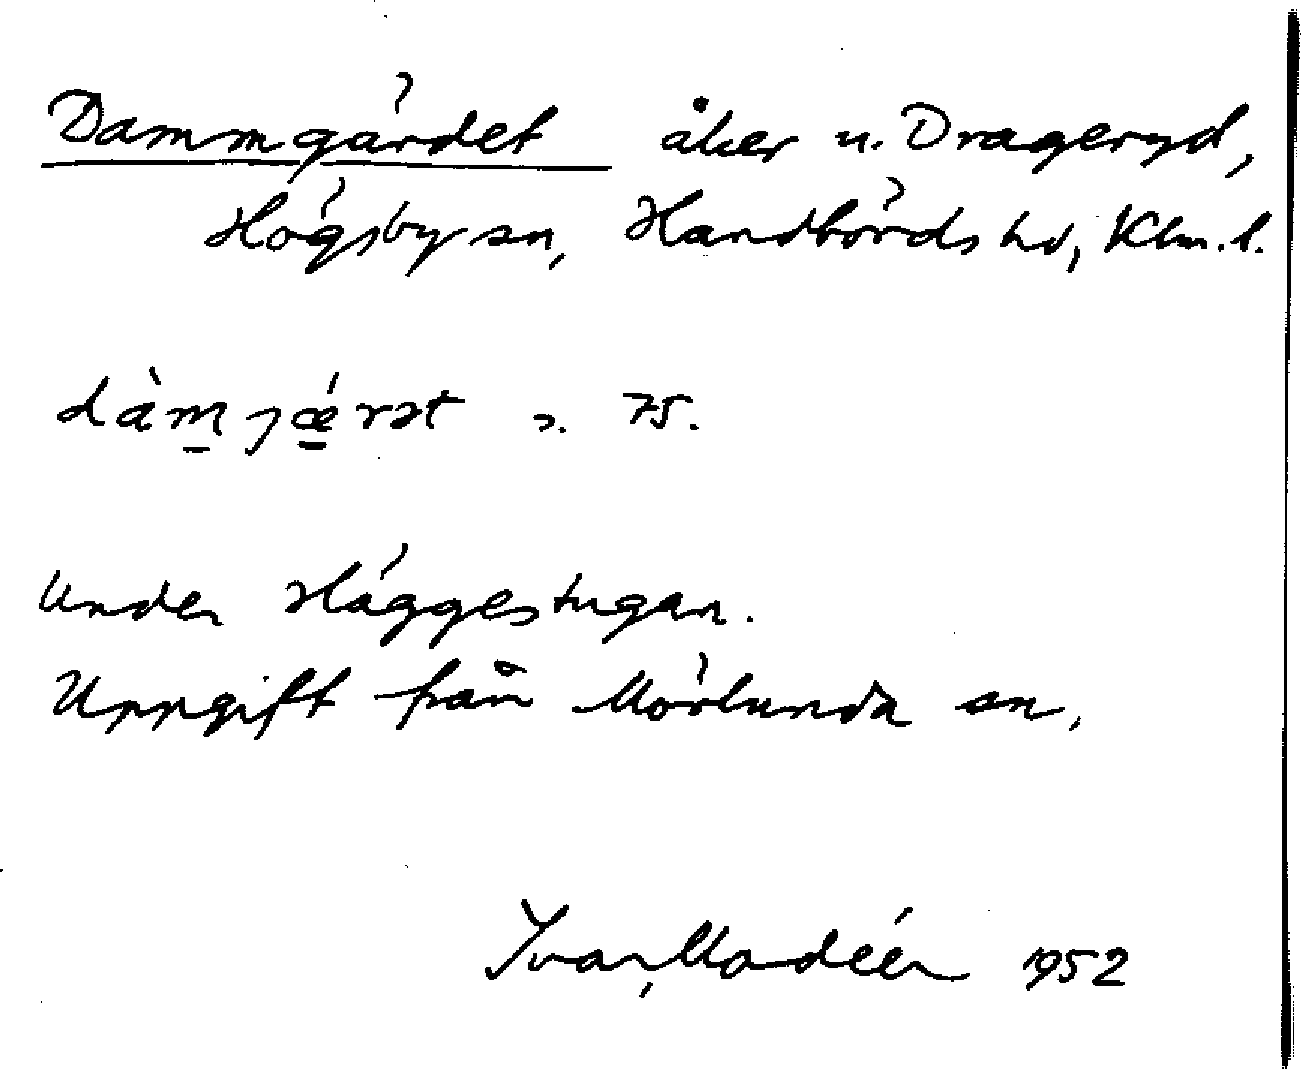 Dammgärdet åker u. Drageryd,
Högsby sn, Handbörds hd, Klm. l.
dàm̲jǽ̲rət ɔ. 75.
Under Häggestugan.
Uppgift från Mörlunda sn.
Ivar Modéer 1952